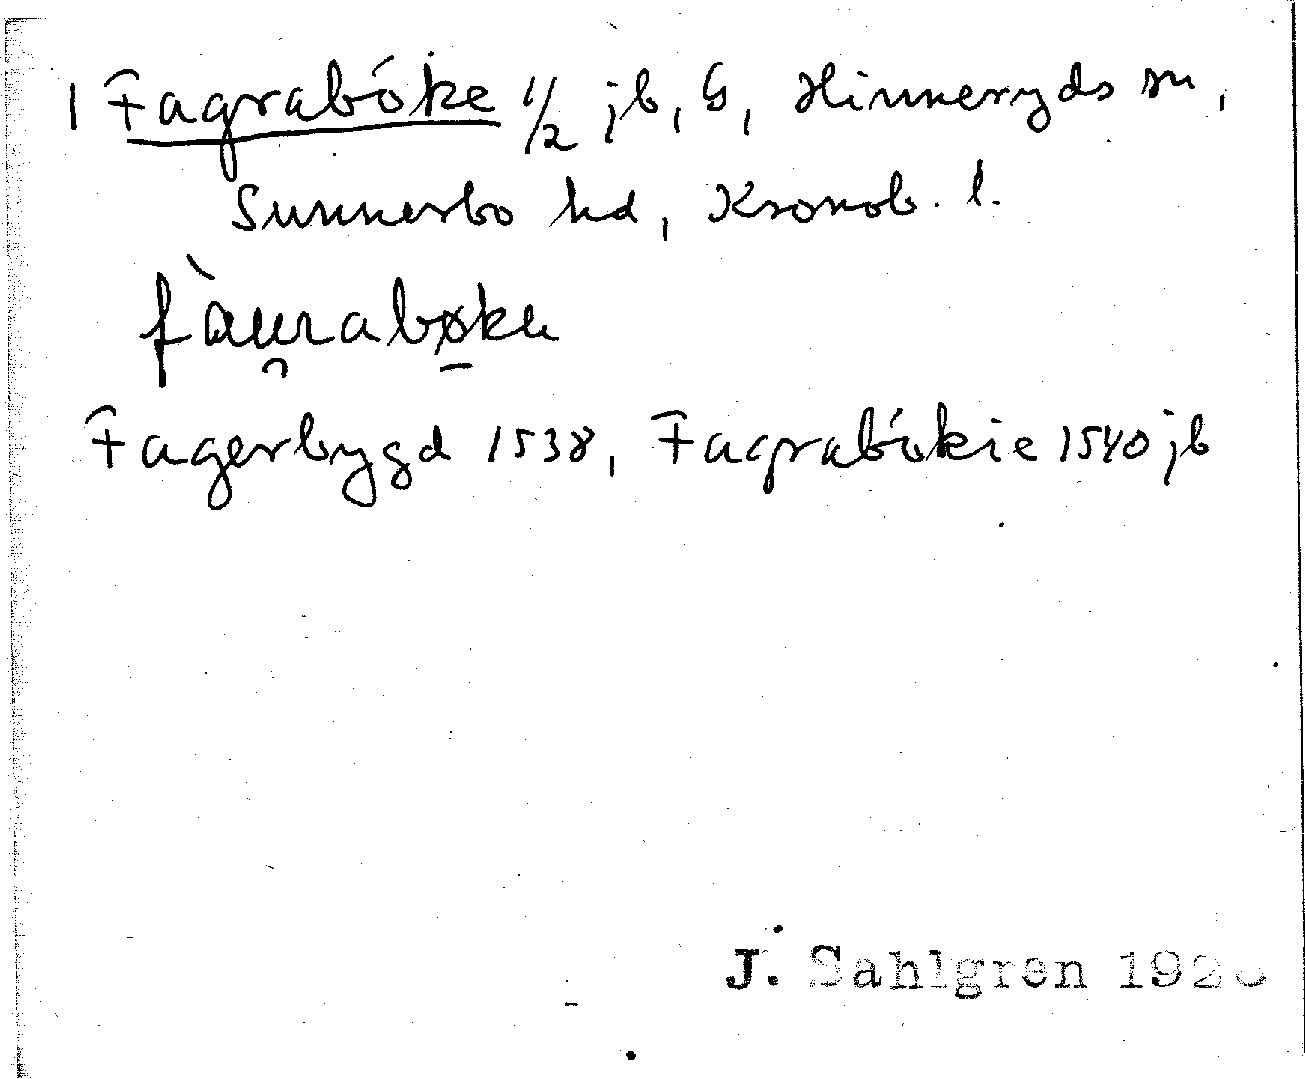 1 Fagraböke 1/2 jb, G, Hinneryds sn,
Sunnerbo hd, Kronob. l.
fàu̯rabø̱ke
Fagerbygd 1538, Fagrabökie 1540 jb
J. Sahlgren